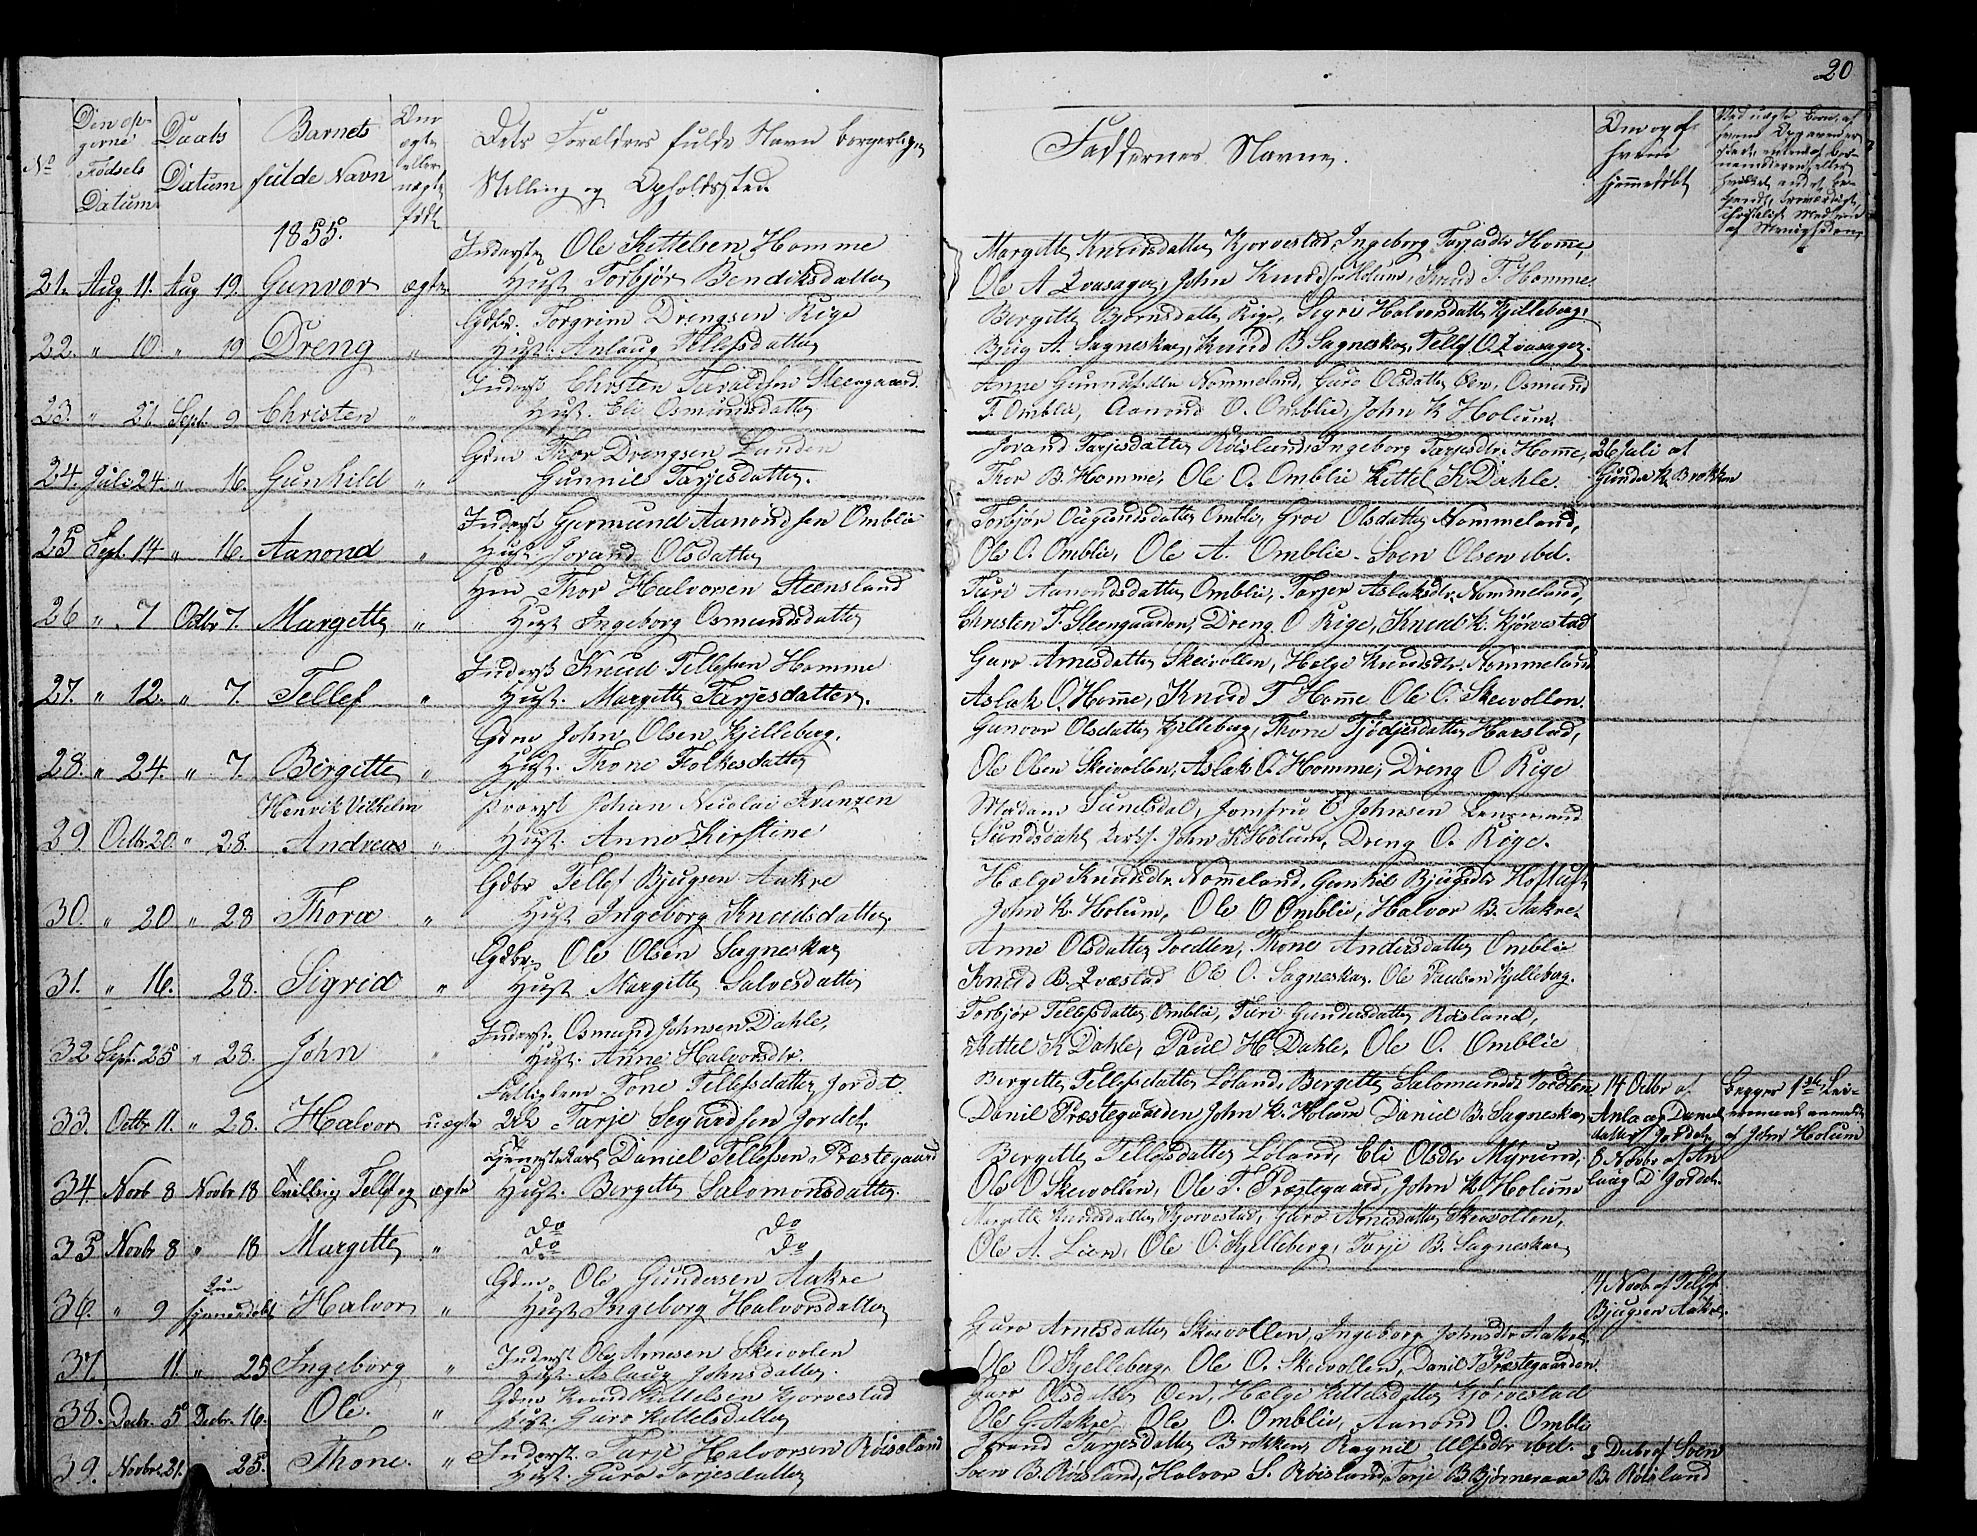 20
No
Den opgivne Fødsels Datum
Daabs Datum
Barnets fulde Navn
Om ægte eller uægte født
Dets Forældres fulde Navn borgerlige Stilling og Opholdssted.
Faddernes Navne.
Om og af hvem hjemmedøbt
1855.
Inderst Ole Kittelsen Homme
21. Aug. 11. Aug 19. Gunvor ægte
Hust. Torbjør Bendiksdatter
Margitte Knudsdatter Kjorvestad, Ingeborg Tarjesdtr Homme,
Ole A Zvasager, John Knudsen Holum, Knud T. Homme
Gdbr. Torgrim Drengsen Rige
22. " 10. " 19 Dreng "
Hust. Anlaug Tellefsdatter
Bergitte Bjørnsdatter Rige, Sigri Halvorsdatter Kjelleberg,
Bjug A. Sagneskar, Knud B Sagneskar, Tellef O. Zvasager.
Inderst Christen Taraldsen Steengaard.
23. " 21. Sept. 9. Christen "
Hust. Eli Osmundsdatter
Anne Gunnufsdtr Nommeland, Guro Olsdatter Øen, Osmund
T. Omblie, Aanond O. Omblie, John K Holum.
Gdm Thor Drengsen Lunden
24. Juli 24. " 16. Gunhild "
Gunnil Tarjesdatter.
Jorand Tarjesdatter Røisland, Ingeborg Tarjesdtr. Homme,
Thor B. Homme, Ole O. Omblie Kittel K Dahle.
26 Juli af
Gunder K. Brokken
Inderst Gjermund Aanondsen Omblie
25 Sept. 14 " 16. Aanond "
Hust Jorand Olsdatter
Torbjør Ougundsdatter Omblie, Groe Olsdatter Nommeland,
Ole O. Omblie, Ole A. Omblie. Sven Olsen ibd.
Hm Thor Halvorsen Steensland
26 " 7 Octbr 7. Margitte "
Hust Ingeborg Osmundsdatter
Turi Aanondsdatter Omblie, Tarjer Aslaksdtr. Nommeland,
Christen T. Steengaarden, Dreng O Rige, Knud K. Kjørvestad
Inderst Knud Tellefsen Homme
27. " 12. " 7. Tellef "
Hust. Margitte Tarjesdatter.
Guro Arnesdatter Skeivollen, Helge Knudsdtr. Nommeland
Aslak O. Homme, Knud T Homme Ole O. Skeivollen.
Gdm John Olsen Kjelleberg.
28. " 24. " 7. Birgitte "
Hust. Thone Folkesdatter
Gunvor Olsdatter Kjelleberg, Thone Tjødjesdatter Harstad,
Ole Olsen Skeivollen, Aslak O. Homme, Dreng O Rige
Henrik Vilhelm
Provst Johan Nicolai Franzen
29. Octbr 20. " 28. Andreas "
Hust. Anno Kirstine
Madam Sundsdal, Jomfru C. Johnsen Lensmand
Sundsdahl, Kirks. John K Holum, Dreng O. Rige.
Gdbr Tellef Bjugsen Aakre
30. " 20 " 28 Thora "
Hust Ingeborg Knudsdatter
Hælge Knudsdtr. Nommeland, Gunhil Bjugsdtr Hoftuft
John K. Holum, Ole O Omblie, Halvor B. Aakre.
Gdbr. Ole Olsen Sagneskar
31. " 16. 28. Sigrid "
Hust Margitte Salvesdatter
Anne Olsdatter Tvedten, Thone Andersdatter Omblie
Knud B. Zvæstad Ole O. Sagneskar, Ole Paulsen Kjelleberg.
Inderst. Osmund Johnsen Dahle,
32 Sept. 25 " 28. John "
Hust. Anne Halvorsdtr.
Torbjør Tellefsdatter Omblie, Turi Gundersdatter Røisland,
Kittel K Dahle, Paul H. Dahle, Ole O. Omblie
Fattiglem Tone Tellefsdatter Jordet.
33. Octbr 11. " 28. Halvor uægte
Tarje Sigurdsen Jordet.
Bergitte Tellefsdatter Loland, Bergitte Salomonsdtr Tvedten
Daniel Præstegaarden John K. Holum Daniel B. Sagneskar
14 Octbr af
Anlaug Danielsdatter Jordet.
Begges 1ste Leiermaal anmeldt
af John Holum
Tjenestekarl Daniel Tellefsen Præstegaard
34. Novb 8 Novbr 18 Tvilling Tellef og ægte
Hust. Bergitte Salomonsdatter.
Bergitte Tellefsdatter Loland, Eli Olsdtr Myrum,
Ole O Skeivollen, Ole T. Præstegaard, John K. Holum
8 Novbr af Anlaug D Jordet.
35 Novbr 8 " 18 Margitte "
Do Do
Do Do
Margitte Knudsdatter Kjorvestad, Guro Arnesdatter Skeivollen,
Ole A. Lien, Ole O. Kjelleberg, Tarje B. Sagneskar
Gdm. Ole Gundersen Aakre
36. " 9 hjemmedøbt Halvor "
Hust Ingeborg Halvorsdatter
14 Novb af Tellef
Bjugsen Aakre.
Inderst Ole Arnesen Skeivolen
37. 11. " 25 Ingeborg "
Hust. Aslaug Johnsdatter.
Guro Arnesdatter Skeivollen, Ingeborg Johnsdtr Aakre,
Ole O Kjelleberg, Ole O. Skeivollen, Daniel T Præstegaarden
Gdm Knud Kittelsen Kjorvestad
38. Decbr. 5 Decbr. 16. Ole. "
Hust. Guro Kittelsdatter
Guro Olsdatter Øen, Hælge Kittelsdatter Kjorvestad
Ole G. Aakre, Ole O. Omblie, Aanond O. Omblie
Inderst. Tarje Halvorsen Røisland
39. Novbr. 21. 25. Thone. "
Hust. Guro Tarjesdatter
Jorand Tarjesdatter Brokken, Ragnil Ulfsdtr ibd.
Sven B. Røisland, Halvor S. Røisland, Tarje B Bjørneraae
3 Decbr af Sven
B. Røisland